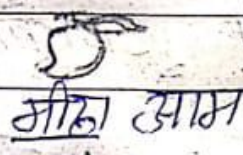 मीठा आम